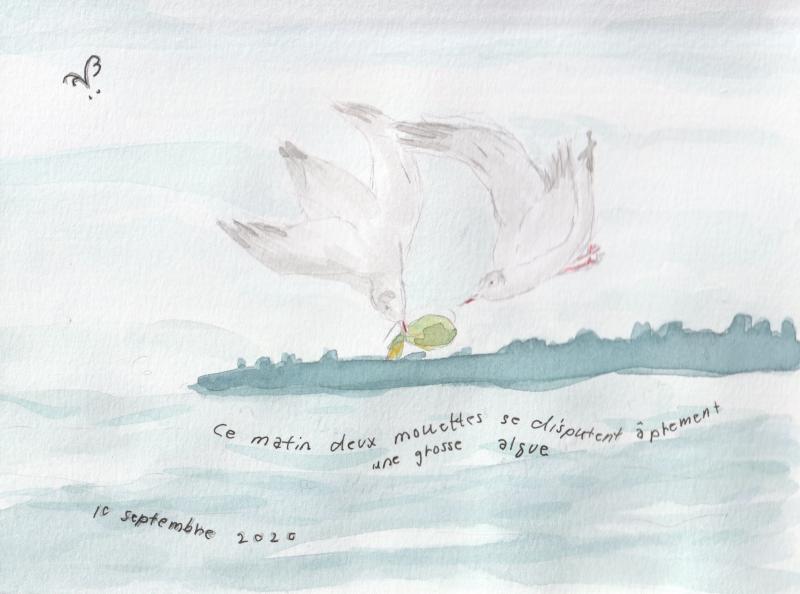 Ce matin deux mouettes se disputent âprement
une grosse algue
septembre 2020